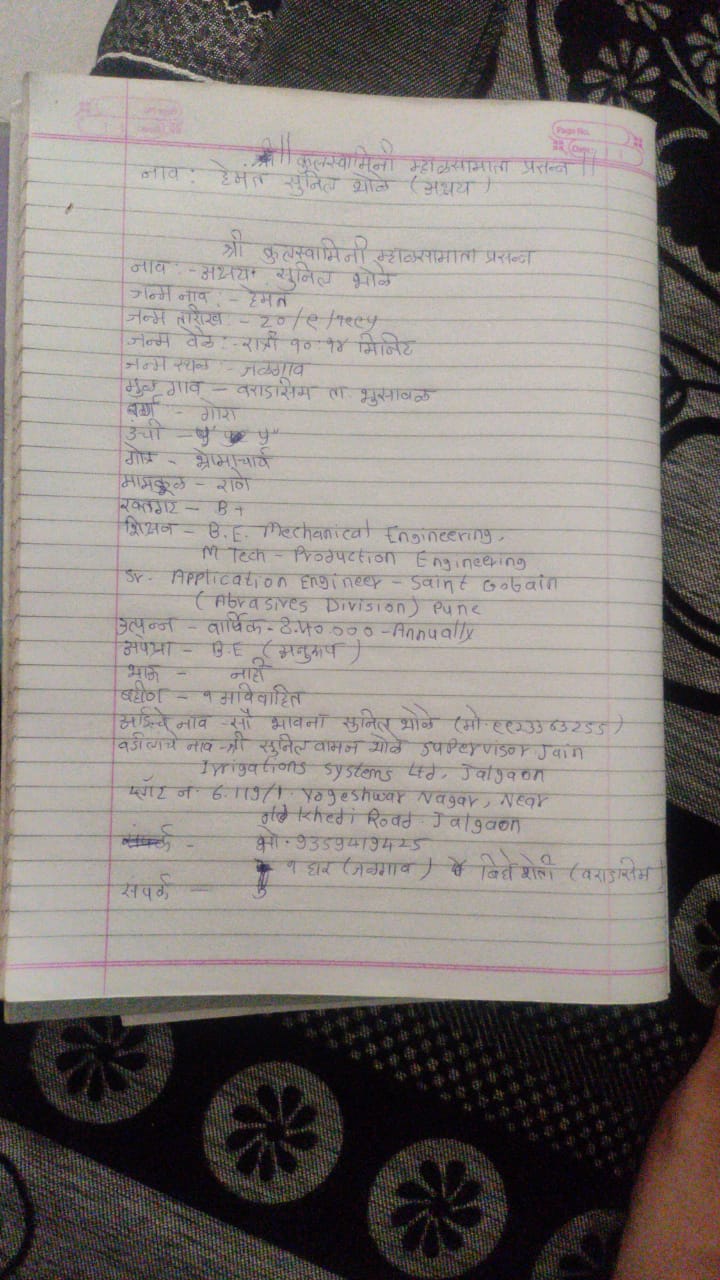 Page No.
Date:
श्री || कुलस्वामिनी म्हाळसामाता प्रसन्न ||
नाव : हेमंत सुनिल भोळे (अक्षय)
श्री कुलस्वामिनी म्हाळसामाता प्रसन्न
नाव :- अक्षय सुनिल भोळे
जन्म नाव :- हेमंत
जन्म तारीख :- २०/९/१९९५
जन्म वेळ :- रात्री १०:१४ मिनिट
जन्म स्थळ :- जळगाव
मुळ गाव – वराडसिम ता. भुसावळ
वर्ण - गोरा
उंची – ५' ५"
गोत्र -
मामकूळ – राणे
रक्तगट – B+
शिक्षन – B.E. Mechanical Engineering,
M Tech - Production Engineering
Sr. Application Engineer – Saint Gobain
(Abrasives Division) Pune
उत्पन्न – वार्षिक - 8.40.000 – Annually
अपेक्षा – B.E (अनुरूप)
भाऊ – नाही
बहीण – १ अविवाहित
आईचे नाव – सौ भावना सुनिल भोळे (मो. ९८23363255)
वडीलाचे नाव – श्री सुनिल वामन भोळे supervisor Jain
Irrigations systems Ltd, Jalgaon
प्लॉट न. 6.119/1. Yogeshwar Nagar, Near
old khedi Road. Jalgaon
संपर्क - मो. 9359419425
१ घर (जळगाव) विघे शेती (वराडसिम)
संपर्क –